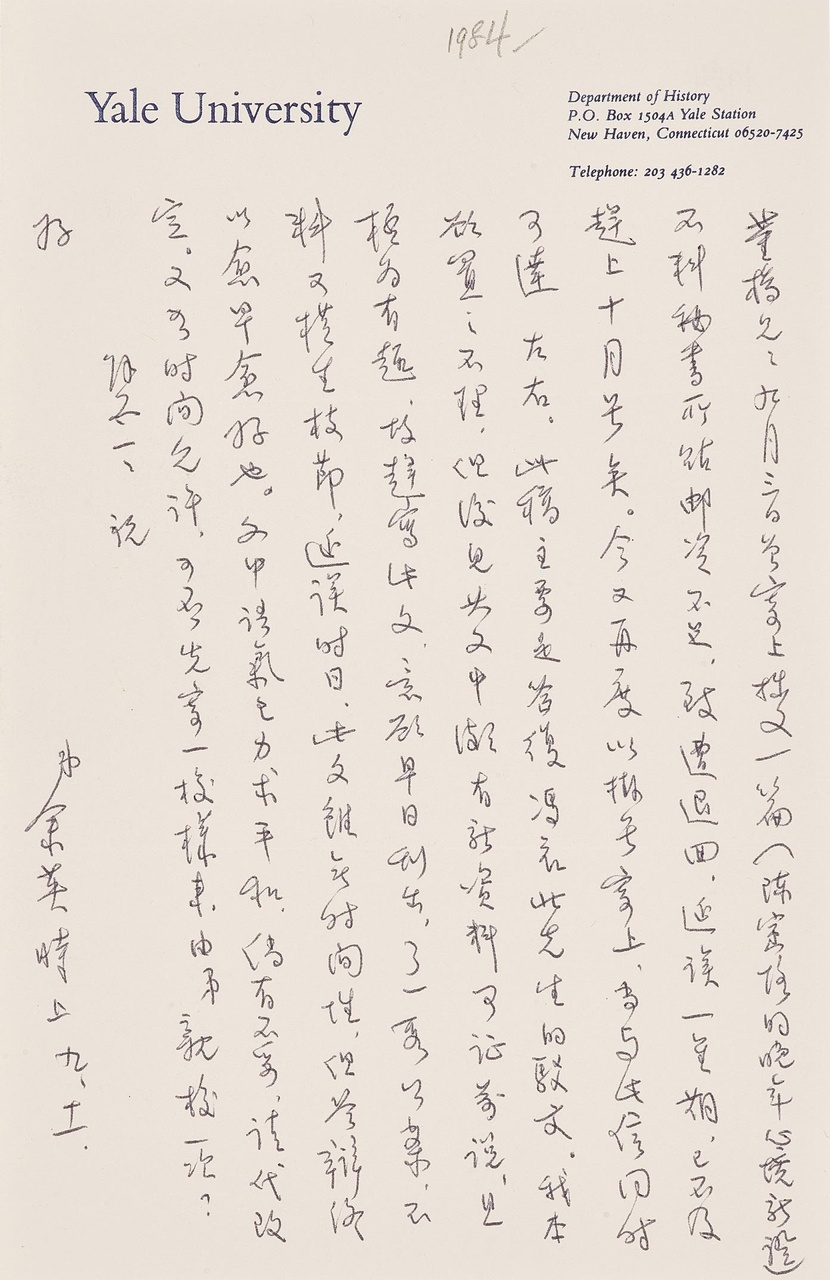 1984
Yale University
Department of History
P.O. Box 1504A Yale Station
New Haven, Connecticut 06520-7425
Telephone: 203 436-1282
董橋兄：九月三日曾寄上拙文一篇（陈寅恪的晚年心境新證
不料秘書所貼邮资不足，致遭退回，延误一星期，已不及
趕上十月号矣。今又再度以掛号寄上，当与此信同时
可達 左右。此稿主要是答復馮衣北先生的駁文。我本
欲置之不理，但後見其文中颇有新资料可证前说，且
极为有趣，故趕寫此文，意欲早日刊出，了一重公案，不
料又横生枝節，延误时日，此文雖无时间性，但答辯终
以愈早愈好也。文中語氣已力求平和，倘有不妥，请代改
定。又如时间允许，可否先寄一校樣来，由弟親校一次？
陈不一一，祝
好
弟余英時上 九、十一.